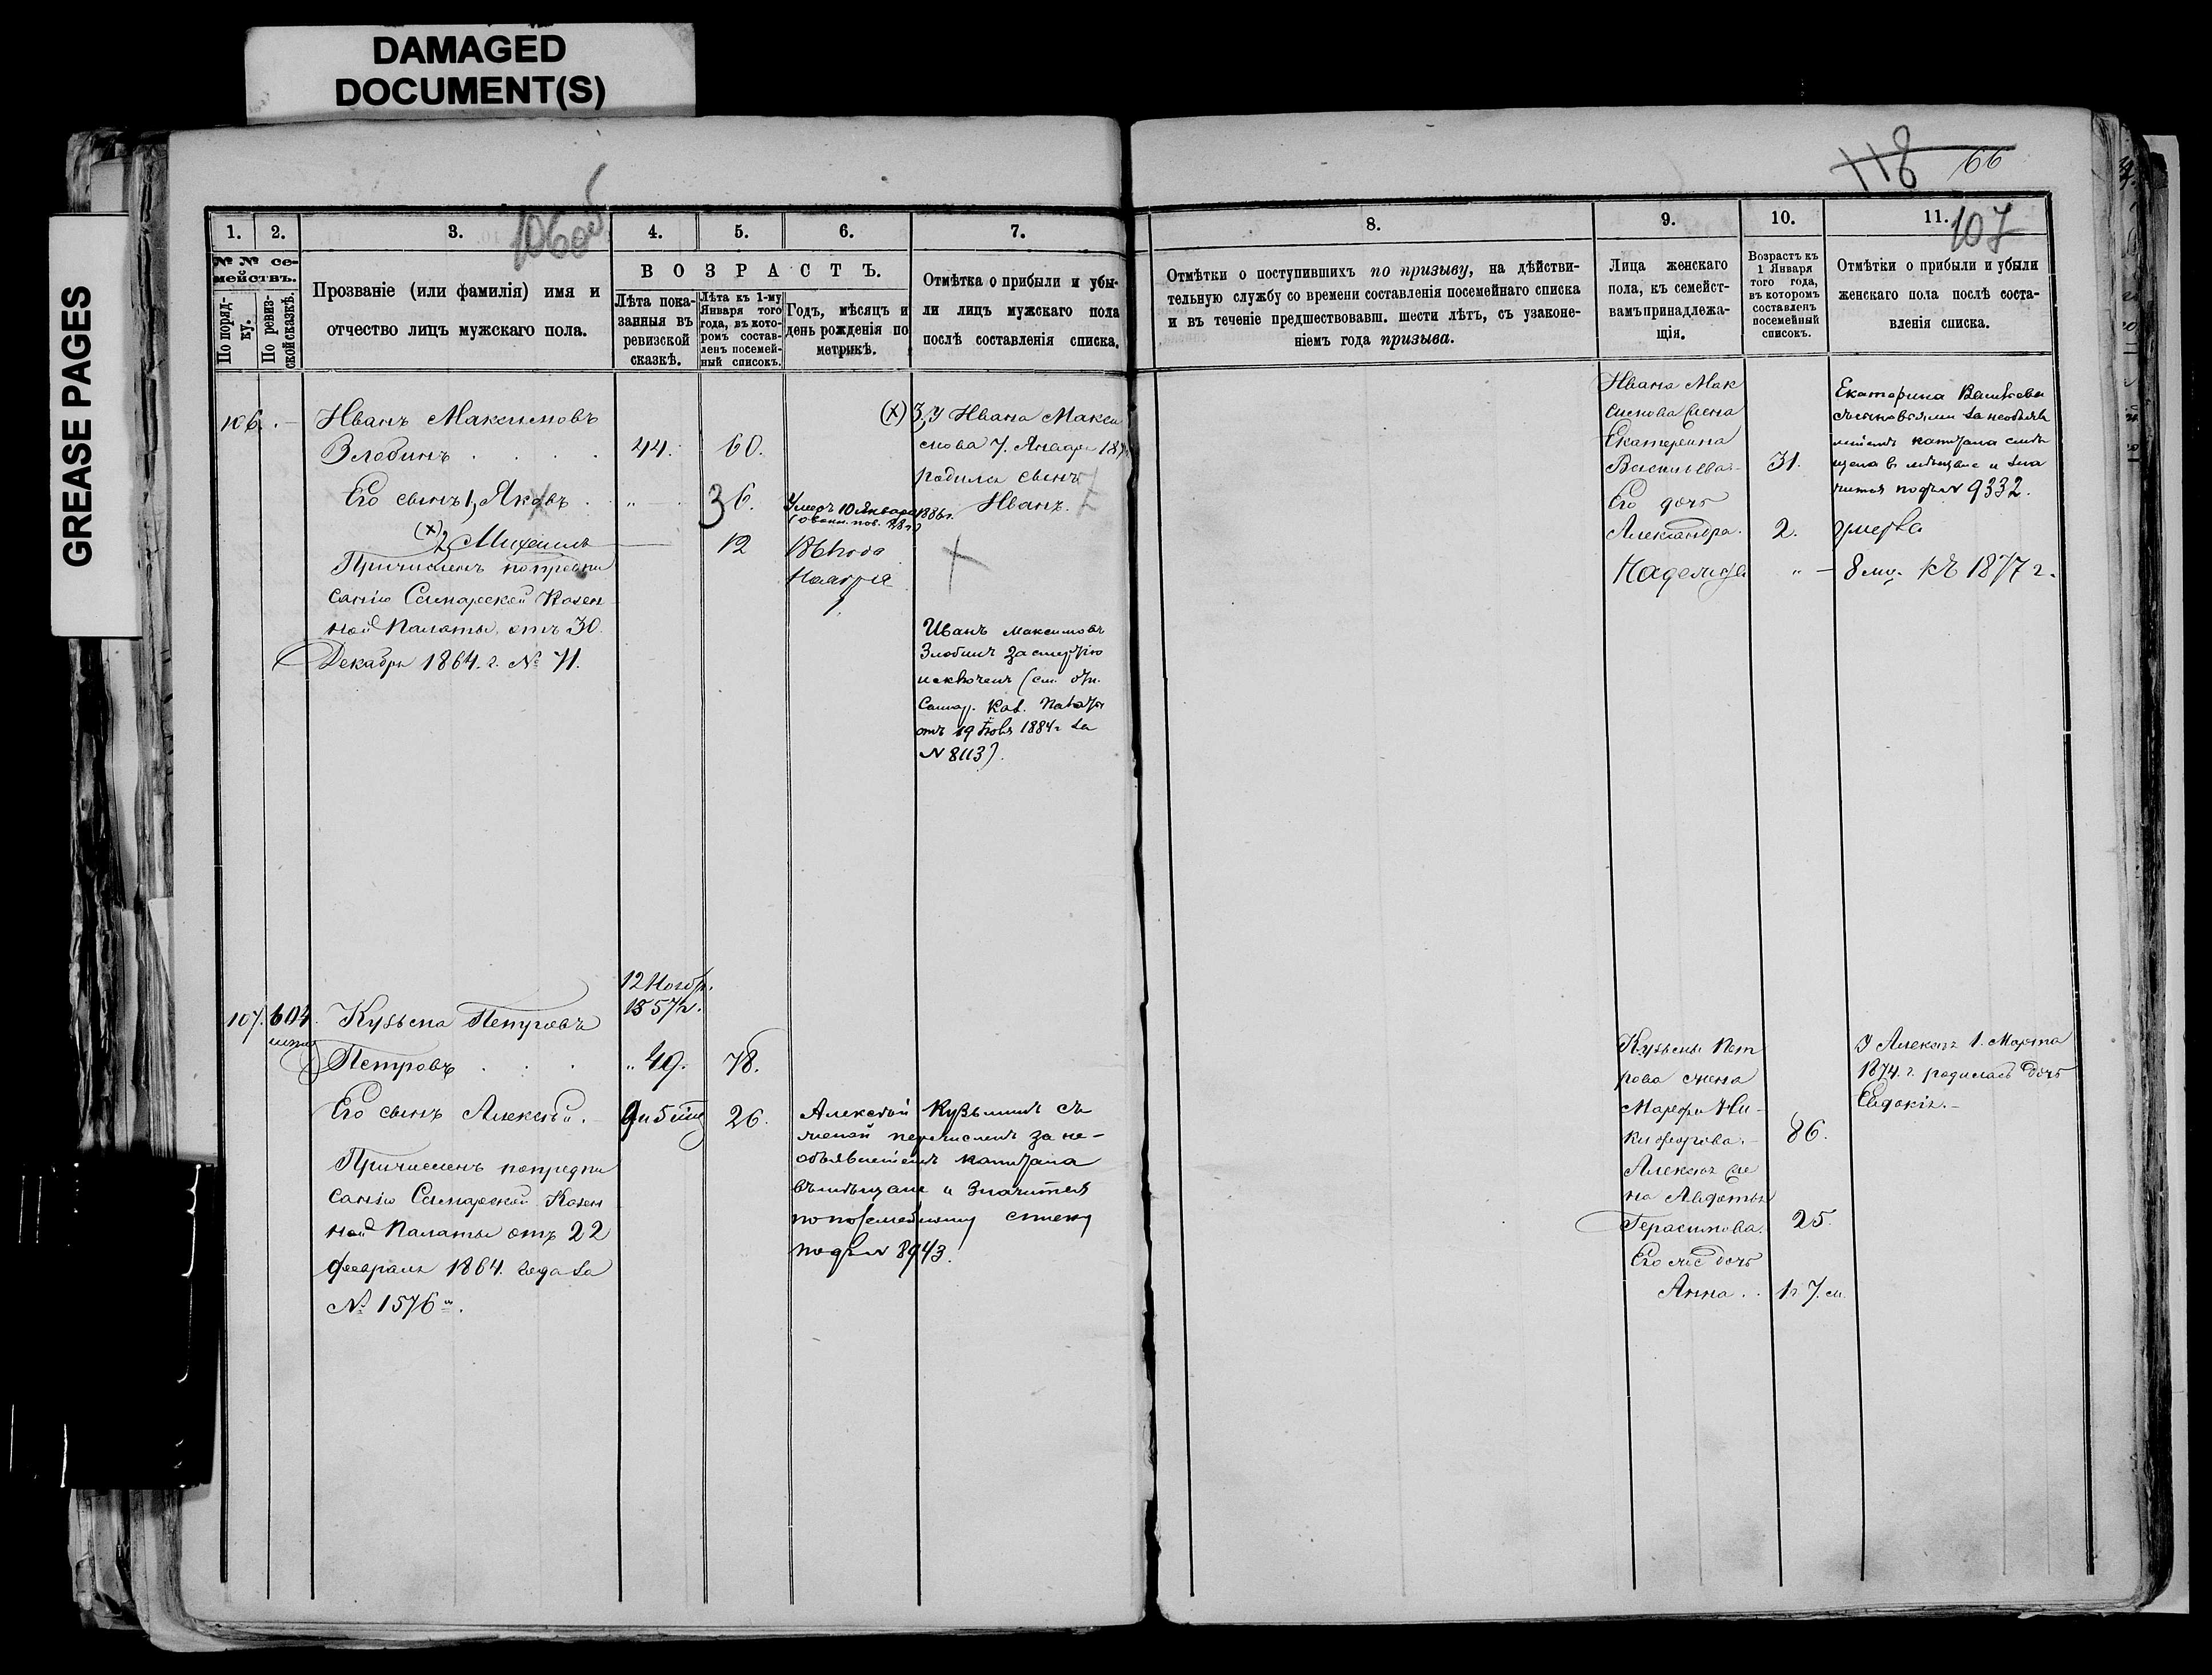 DAMAGED
DOCUMENT(S)
GREASE PAGES
118 66
106об
107
1. 2. 3. 4. 5. 6. 7. 8. 9. 10. 11.
№ № се-
мействъ.
По поряд-
ку.
По ревиз-
ской сказкѣ.
Прозваніе (или фамилія) имя и
отчество лицъ мужскаго пола.
ВОЗРАСТЪ.
Лѣта пока-
занныя въ
ревизской
сказкѣ.
Лѣта къ 1-му
Января того
года, въ кото-
ромъ состав-
ленъ посемей-
ный списокъ.
Годъ, мѣсяцъ и
день рожденія по
метрикѣ.
Отмѣтка о прибыли и убы-
ли лицъ мужскаго пола
послѣ составленія списка.
Отмѣтки о поступившихъ по призыву, на дѣйстви-
тельную службу со времени составленія посемейнаго списка
и въ теченіе предшествовавш. шести лѣтъ, съ узаконе-
ніемъ года призыва.
Лица женскаго
пола, къ семейст-
вамъ принадлежа-
щія.
Возрастъ къ
1 Января
того года,
въ которомъ
составленъ
посемейный
списокъ.
Отмѣтки о прибыли и убыли
женскаго пола послѣ соста-
вленія списка.
106.
Иванъ Максимовъ
Злобинъ 44. 60.
Его сынъ 1, Яковъ „ 36.
Умеръ 10 Января 1886 г.
(х)
2, Михаилъ 12
Ноября
Причисленъ по предпи
санію Самарской Казен
ной Палаты, отъ 30
Декабря 1864. г. № 71.
(х) 3, У Ивана Макси
мова 7. Января 187
родился сынъ
Иванъ.
Иванъ Максимовъ
Злобинъ за смертію
исключенъ (см. отн.
Самар. Каз. Палаты
отъ 19 1884 г за
№ 8113).
Ивана Мак
симова жена
Екатерина
Васильева 31.
Его дочь
Александра. 2.
Надежда „
Екатерина Васильева
съ сыновьями за необъяв
леніемъ капитала
въ мѣщане и зна
чится подъ № 9332.
умерла
8 мц. къ 1877 г.
107. 604.
12 Ноябр.
1857 г.
Кузьма Петровъ
Петровъ „ 49. 78.
Его сынъ Алексѣй. 9 и 5 мц 26.
Причисленъ по предпи
санію Самарской Казен
ной Палаты отъ 22
Февраля 1864. года за
№ 1576м.
Алексѣй Кузьминъ съ
женой перечисленъ за не-
объявленіемъ капитала
въ мѣщане и значится
по посемейному списку
подъ № 8943.
Кузьмы Пет
рова жена
Марфа Ни-
кифорова. 86.
Алексѣя же
на Авдотья
Герасимова. 25.
Его же дочь
Анна 1 г 7. м.
У Алексѣя 1. Марта
1874. г. родилась дочь
Евдокія.